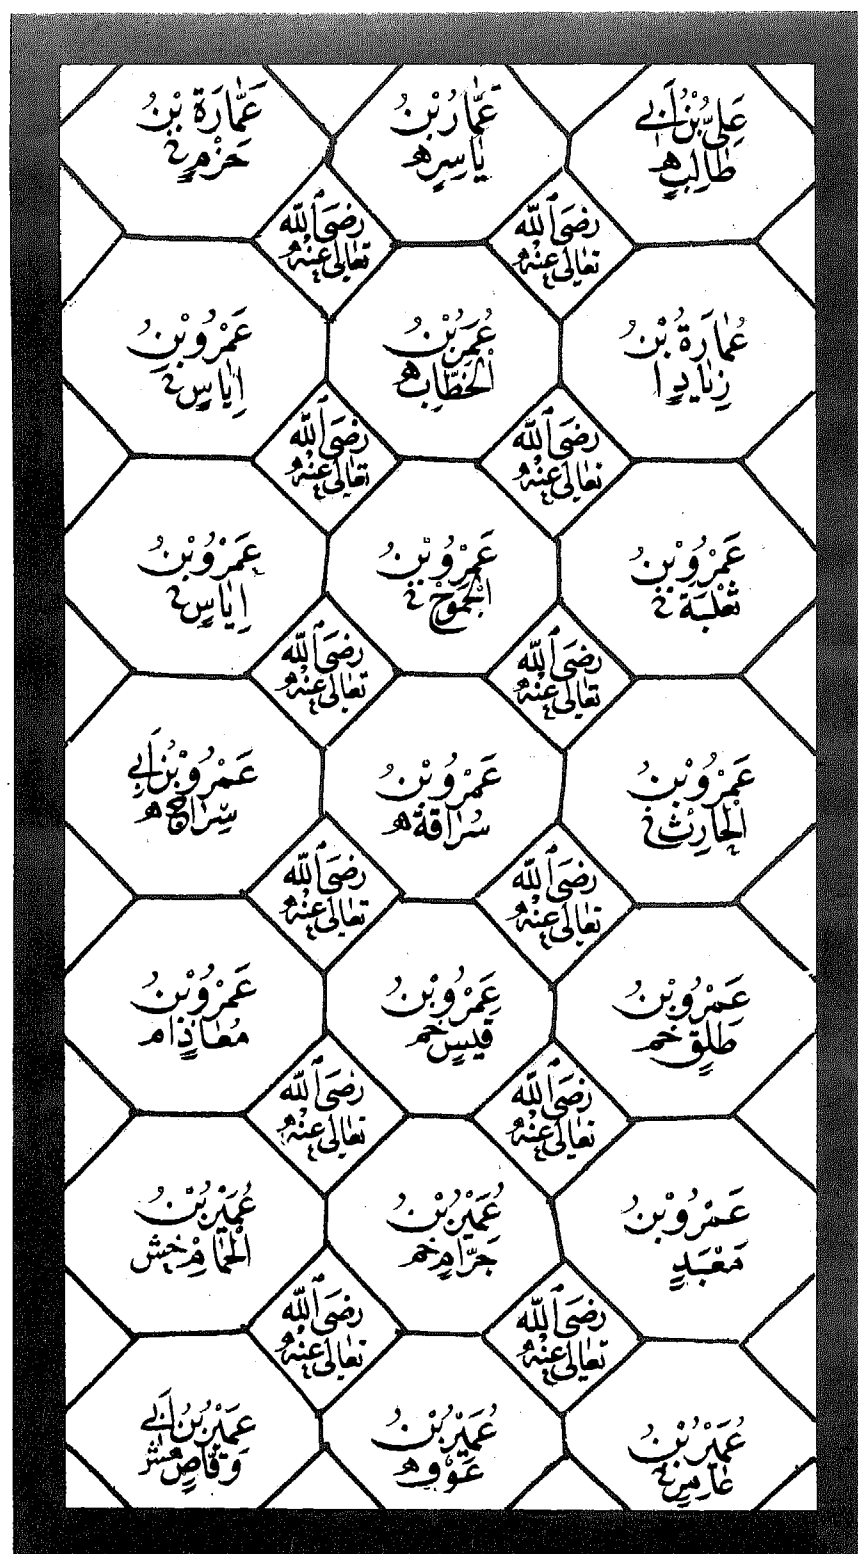 عَلِيُّ بْنُ أَبِي
طَالِبٍ ه
عَمَّارُ بْنُ
يَاسِرٍ ه
عَمَّارَةُ بْنُ
حَزْمٍ خ
رَضِيَ اللّٰه
تَعَالىٰ عَنْهُ
رَضِيَ اللّٰه
تَعَالىٰ عَنْهُ
عُمَارَةُ بْنُ
زِيَادٍ ا
عُمَرُ بْنُ
الْخَطَّابِ ه
عَمْرُو بْنُ
اِيَاسٍ خ
رَضِيَ اللّٰه
تَعَالىٰ عَنْهُ
رَضِيَ اللّٰه
تَعَالىٰ عَنْهُ
عَمْرُو بْنُ
ثَعْلَبَةَ خ
عَمْرُو بْنُ
الْجَمُوْحِ خ
عَمْرُو بْنُ
اِيَاسٍ خ
رَضِيَ اللّٰه
تَعَالىٰ عَنْهُ
رَضِيَ اللّٰه
تَعَالىٰ عَنْهُ
عَمْرُو بْنُ
الْحَارِثِ خ
عَمْرُو بْنُ
سُرَاقَةَ ه
عَمْرُو بْنُ أَبِي
سِرَاحٍ ه
رَضِيَ اللّٰه
تَعَالىٰ عَنْهُ
رَضِيَ اللّٰه
تَعَالىٰ عَنْهُ
عَمْرُو بْنُ
طَلِقٍ خم
عَمْرُو بْنُ
قَيْسٍ خم
عَمْرُو بْنُ
مُعَاذٍ ام
رَضِيَ اللّٰه
تَعَالىٰ عَنْهُ
رَضِيَ اللّٰه
تَعَالىٰ عَنْهُ
عَمْرُو بْنُ
مَعْبَدٍ
عُمَيْرُ بْنُ
حَرَامٍ خم
عُمَيْرُ بْنُ
الْحَمَامِ خش
رَضِيَ اللّٰه
تَعَالىٰ عَنْهُ
رَضِيَ اللّٰه
تَعَالىٰ عَنْهُ
عُمَيْرُ بْنُ
عَامِرٍ خ
عُمَيْرُ بْنُ
عَوْفٍ ه
عُمَيْرُ بْنُ أَبِي
وَقَاصٍ هش